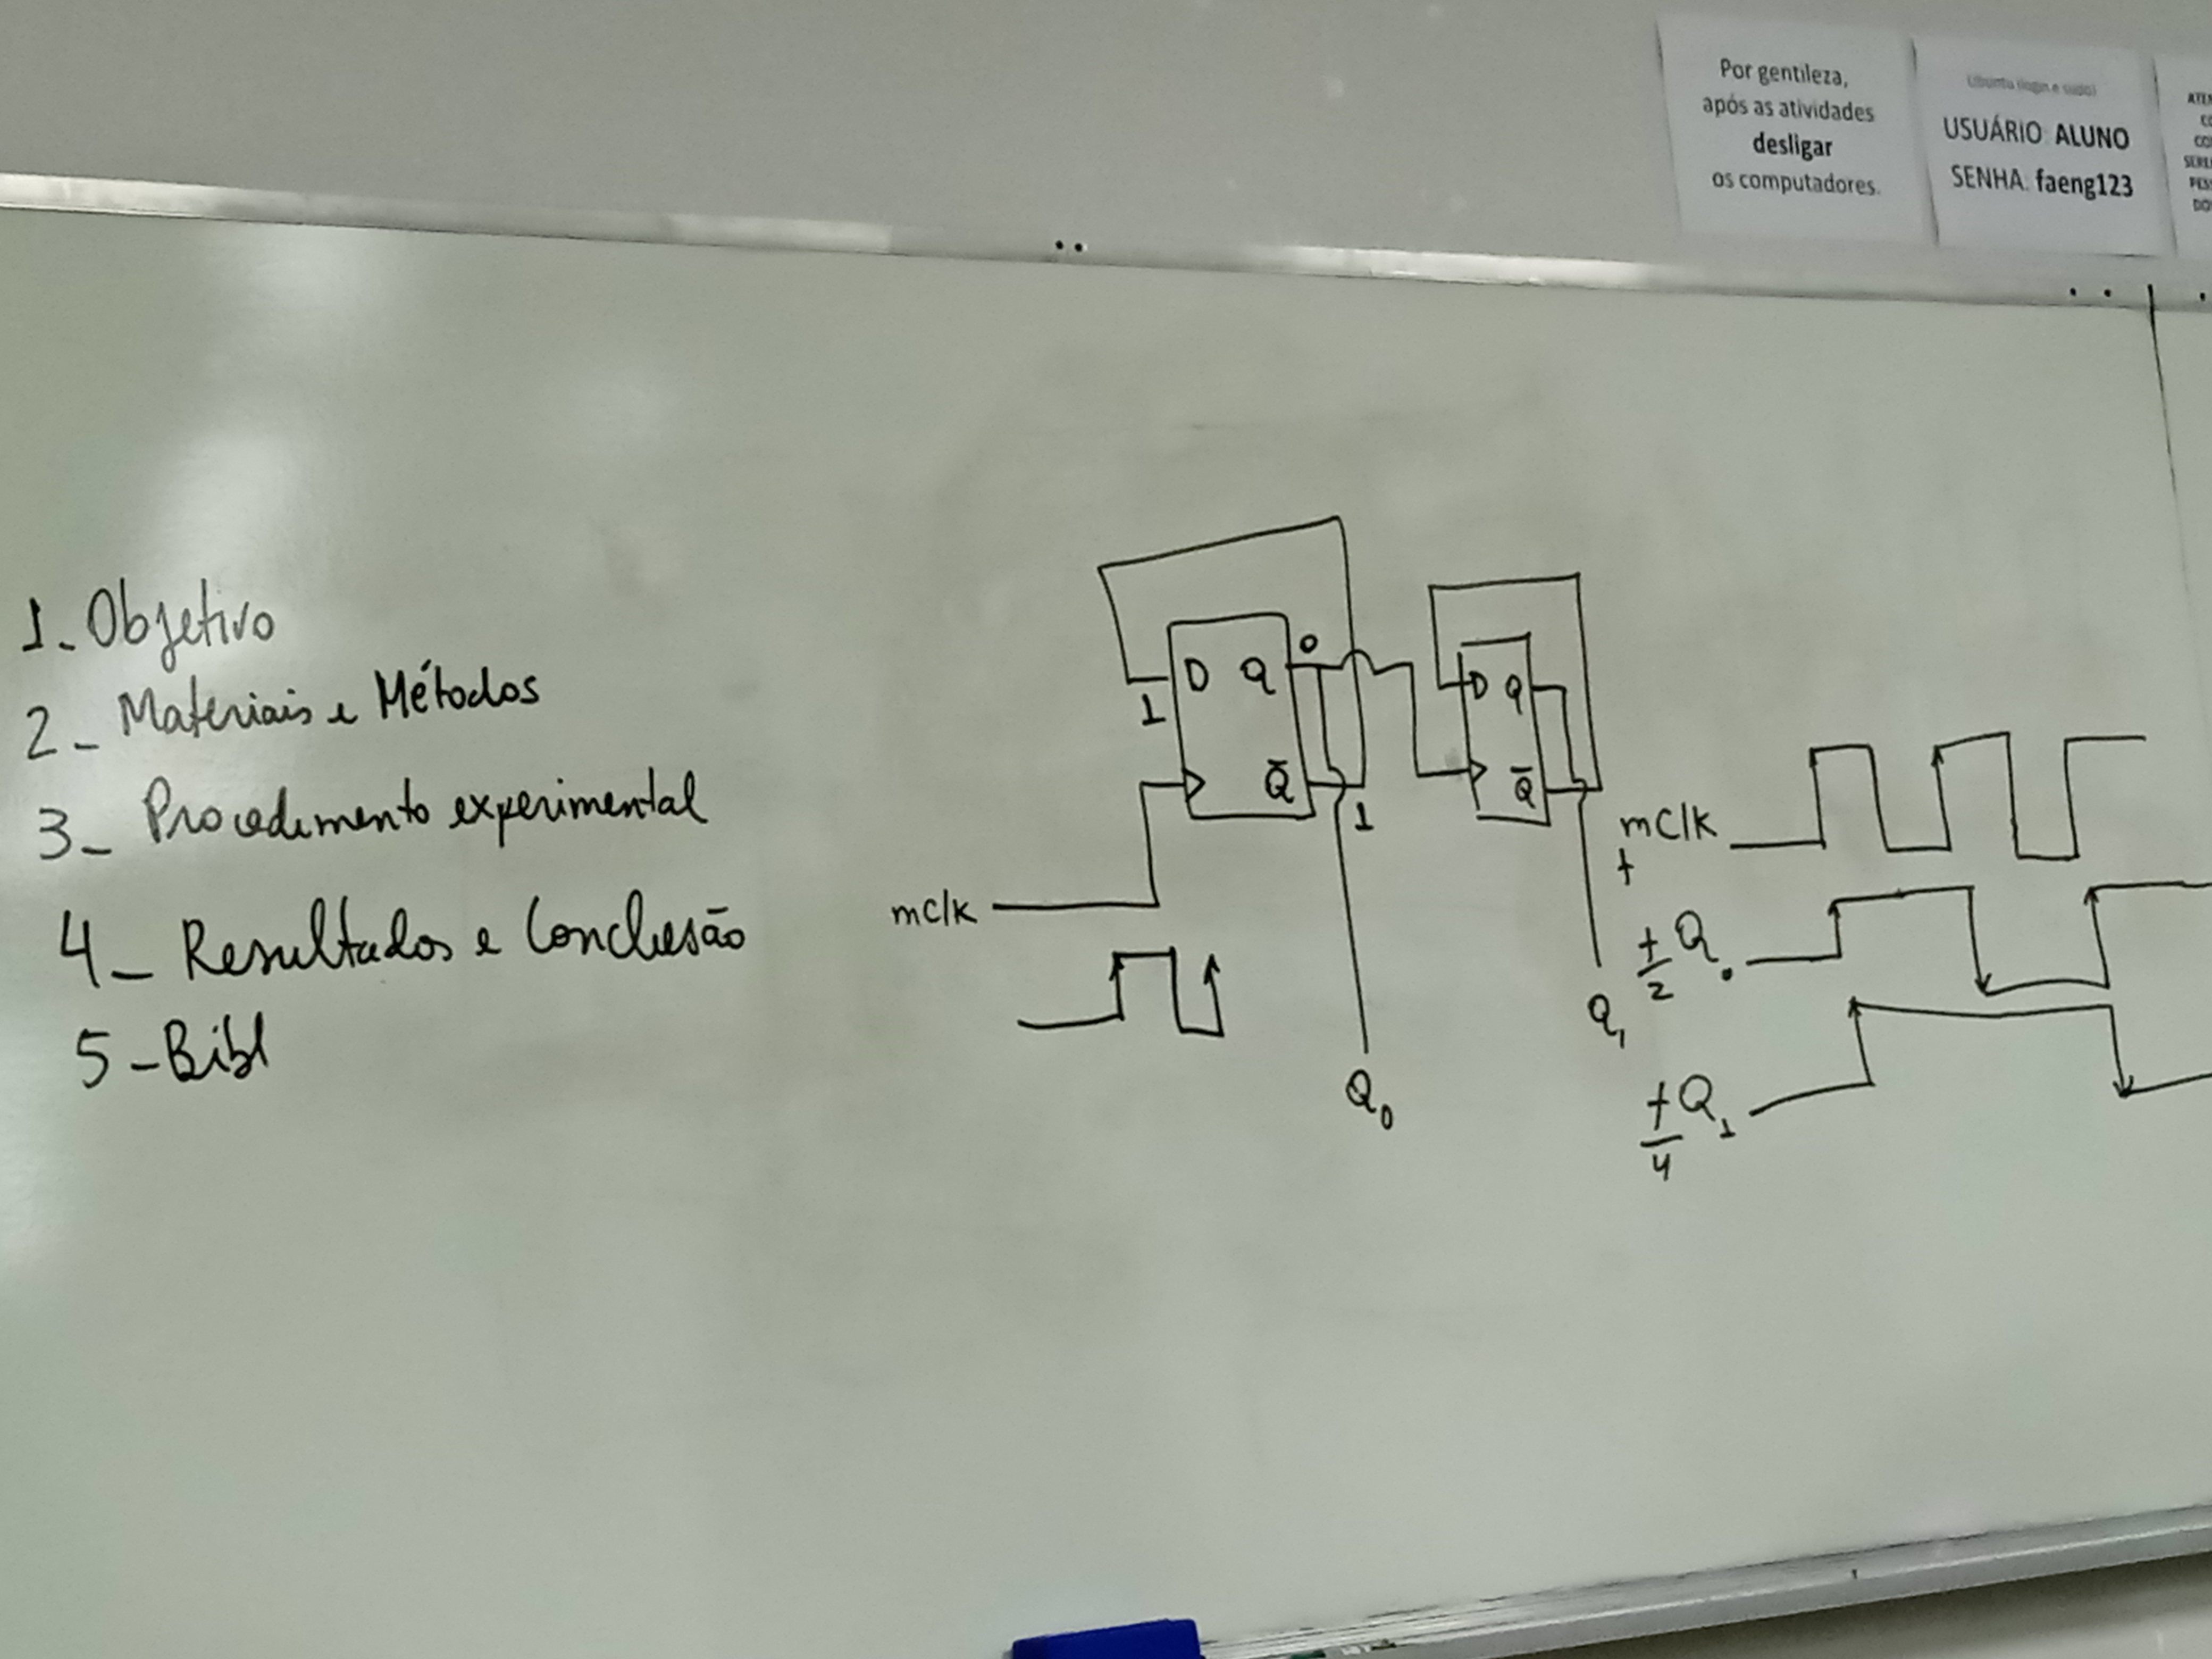 Por gentileza,
após as atividades
desligar
os computadores.
Ubuntu (login e sudo)
USUÁRIO: ALUNO
SENHA: faeng123
1- Objetivo
2- Materiais e Métodos
3- Procedimento experimental
4- Resultados e Conclusão
5-Bibl
D Q 0
1
Q̅ 1
mclk
Q0
D Q
Q̅
Q1
mclk
f
f/2 Q0
f/4 Q1